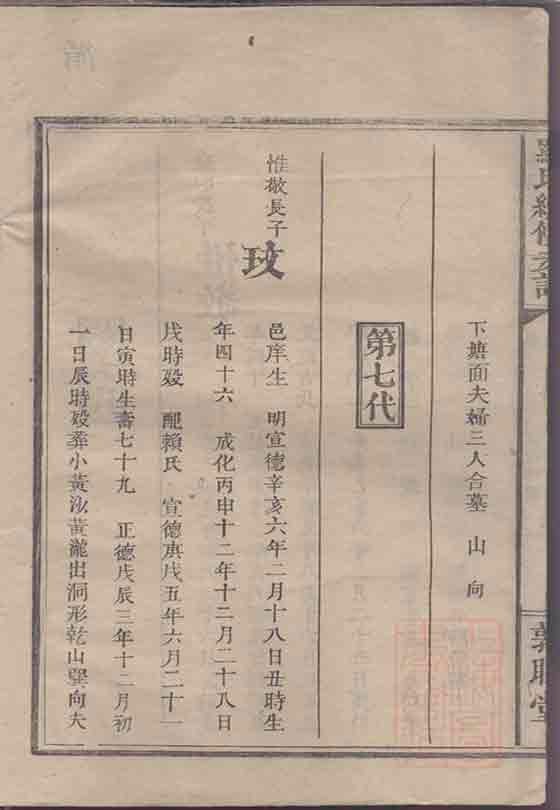 氏續修支譜
敦睦堂
下塘面夫婦三人合墓 山 向
第七代
惟敬長子
玫
邑庠生 明宣德辛亥六年二月十八日丑時生
年四十六 成化丙申十二年十二月二十八日
戌時歿 配賴氏 宣德庚戌五年六月二十一
日寅時生壽七十九 正德戊辰三年十二月初
一日辰時歿葬小黃沙黃瀧出洞形乾山巽向夫